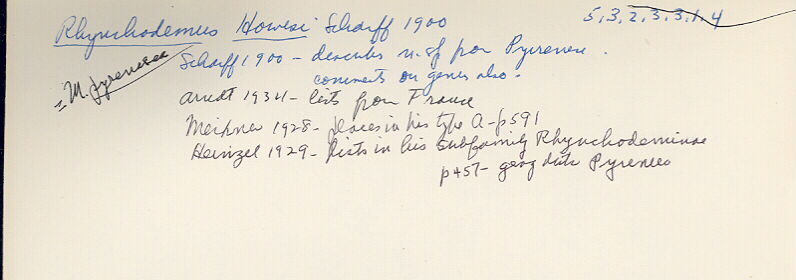 Rhynchodemus Howesi Scharff 1900
5,3,2,3,3,1,4
Scharff 1900 - describes n. sp from Pyrenees.
comments on genus also.
= M. pyrenesea
Arndt 1934 - lists from France
Meixner 1928 - places in his type A - p591
Heinzel 1929 - lists in his subfamily Rhynchodeminae
p457 - geog dist Pyrenees